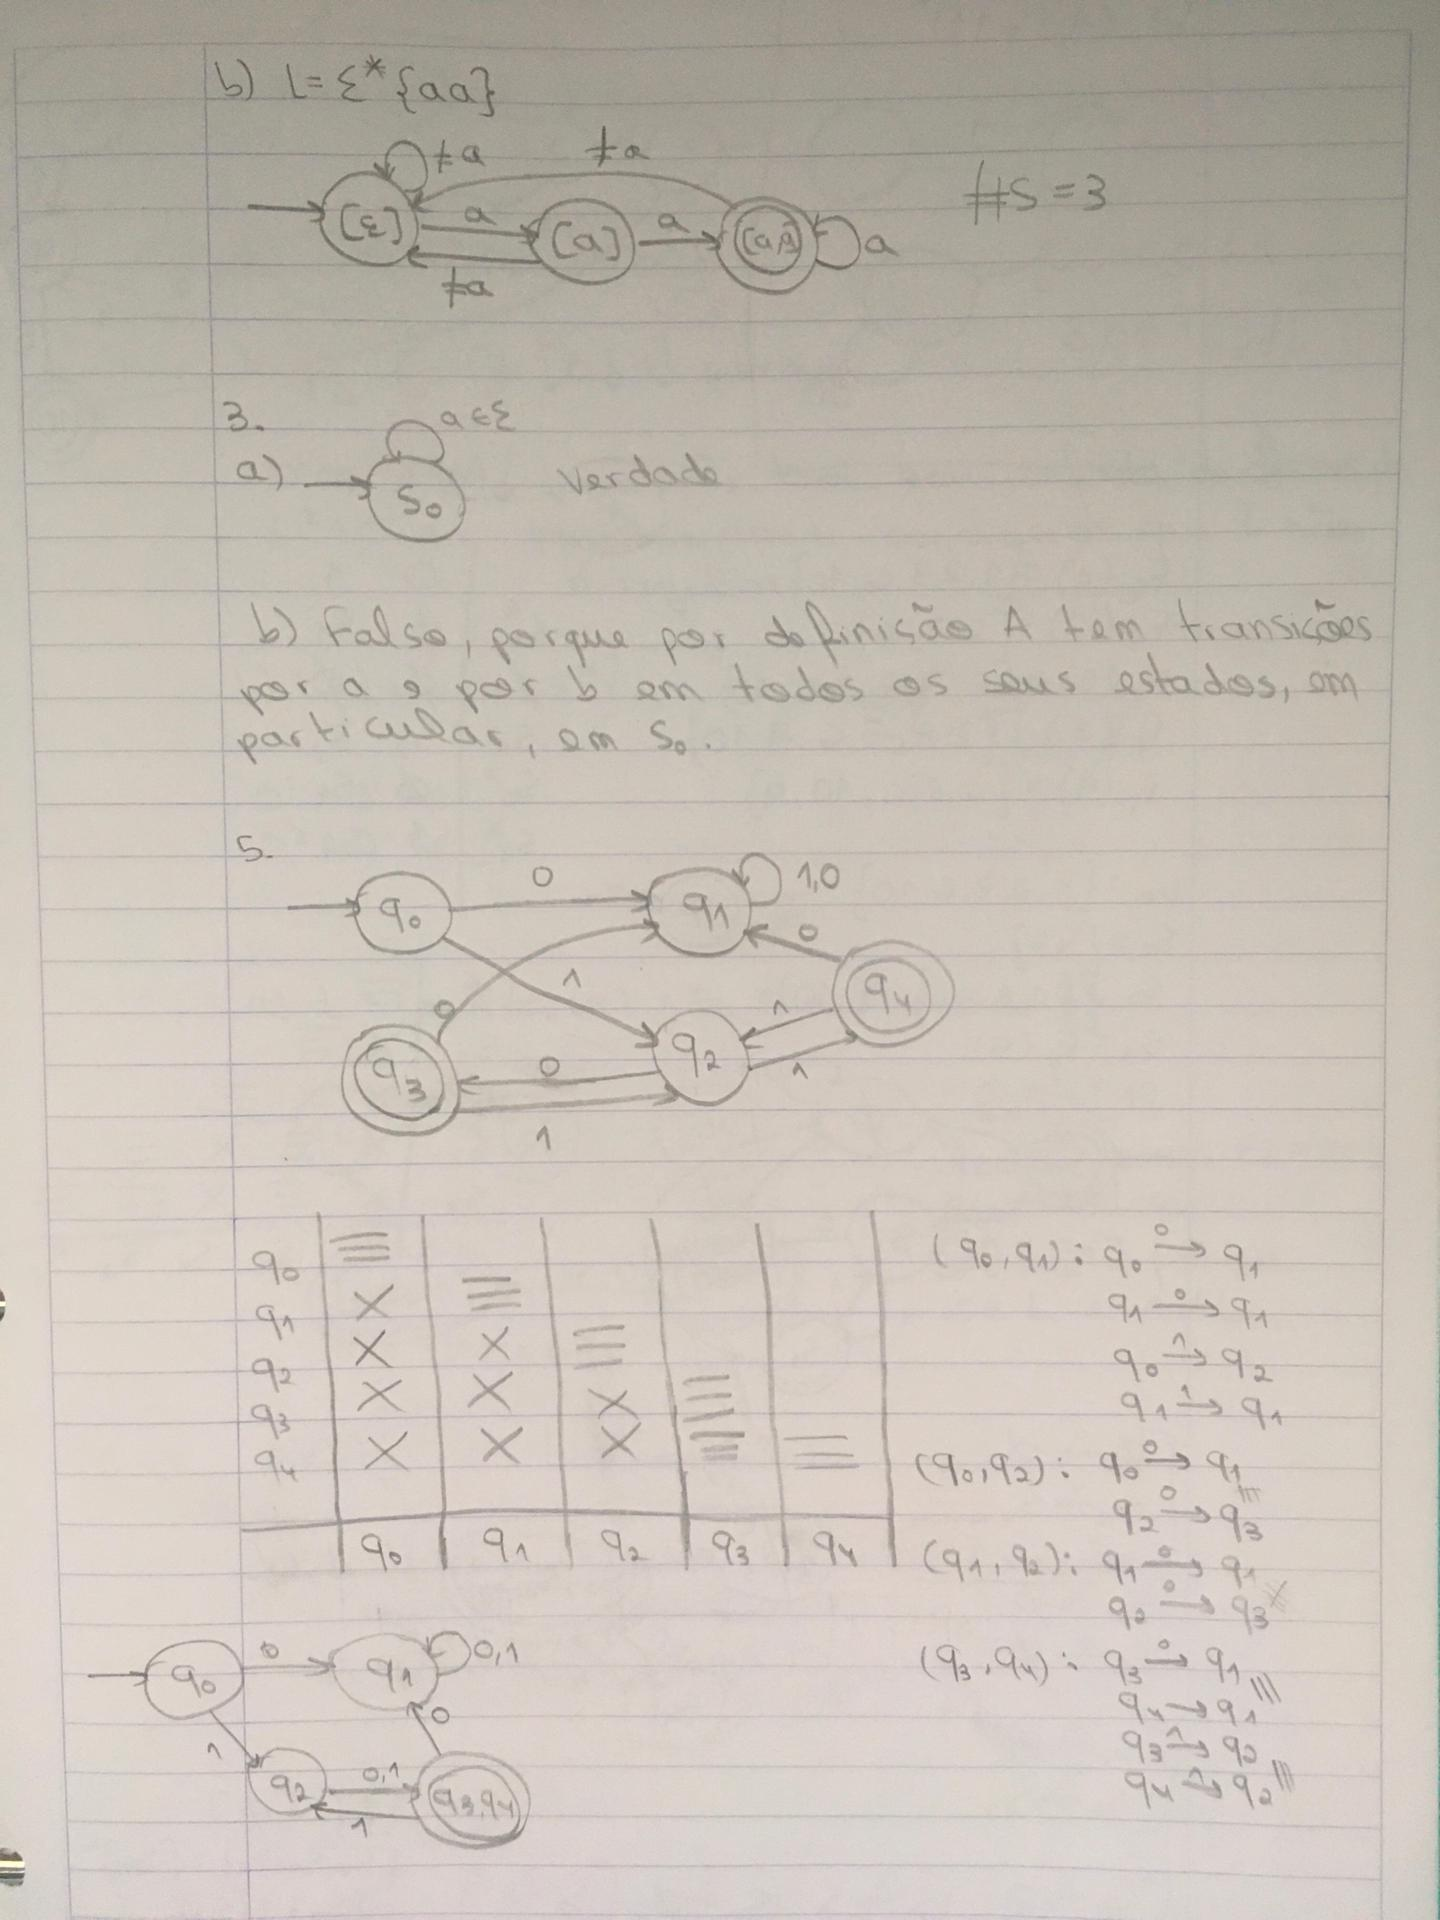 b) L=Σ*{aa}
≠a ≠a
[ε] a [a] a [aa] a #S=3
≠a
3.
a∈Σ
a) S₀ Verdade
b) Falso, porque por definição A tem transições
por a e por b em todos os seus estados, em
particular, em S₀.
5.
q₀ 0 q₁ 1,0
0
0 1 1 q₄
q₃ 0 q₂ 1
1
q₀ ≡
q₁ X ≡
q₂ X X ≡
q₃ X X X ≡
q₄ X X X ≡ ≡
q₀ q₁ q₂ q₃ q₄
(q₀,q₁): q₀ 0→ q₁
q₁ 0→ q₁
q₀ 1→ q₂
q₁ 1→ q₁
(q₀,q₂): q₀ 0→ q₁
q₂ 0→ q₃
(q₁,q₂): q₁ 0→ q₁
q₂ 0→ q₃ X
(q₃,q₄): q₃ 0→ q₁
q₄ → q₁ ≡
q₃ 1→ q₂
q₄ 1→ q₂ ≡
q₀ 0 q₁ 0,1
0
1
q₂ 0,1 q₃,q₄
1